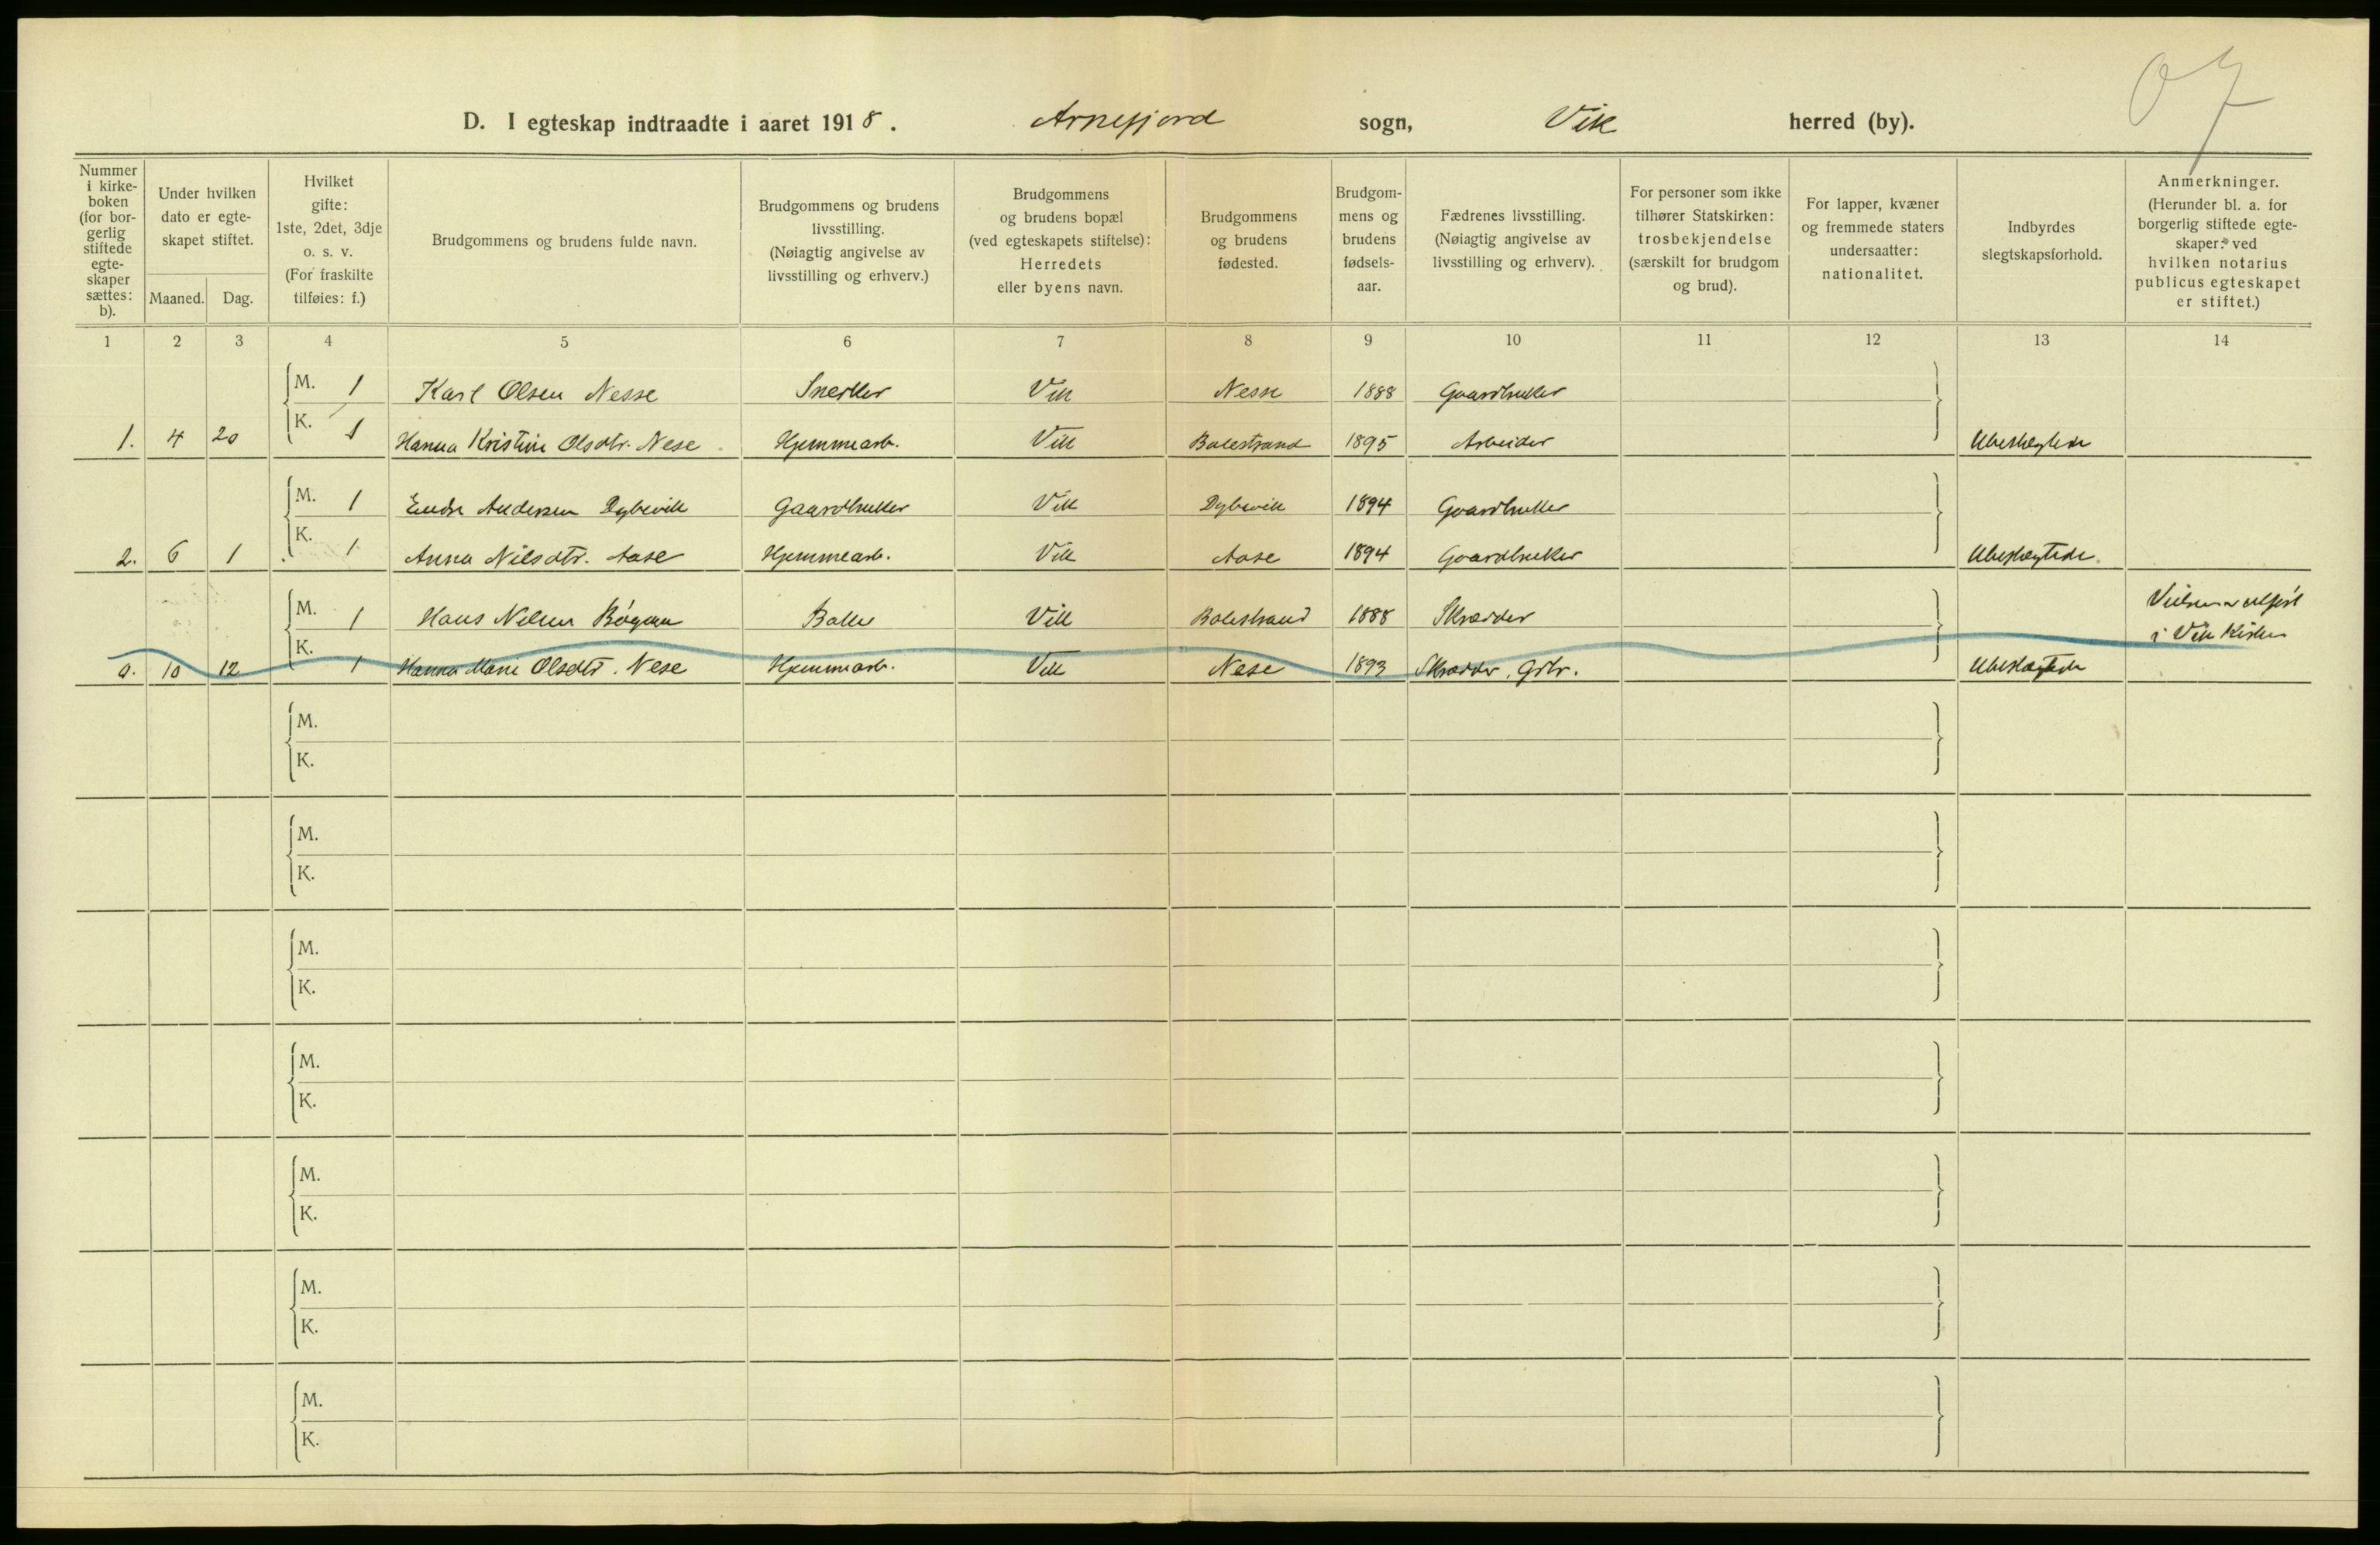 07
D. I egteskap indtraadte i aaret 1918. Arnefjord sogn, Vik herred (by).
Nummer i kirke-boken (for bor-gerlig stiftede egte-skaper sættes: b).
Under hvilken dato er egte-skapet stiftet.
Maaned. Dag.
Hvilket gifte: 1ste, 2det, 3dje o. s. v. (For fraskilte tilføies: f.)
Brudgommens og brudens fulde navn.
Brudgommens og brudens livsstilling. (Nøiagtig angivelse av livsstilling og erhverv.)
Brudgommens og brudens bopæl (ved egteskapets stiftelse): Herredets eller byens navn.
Brudgommens og brudens fødested.
Brudgom-mens og brudens fødsels-aar.
Fædrenes livsstilling. (Nøiagtig angivelse av livsstilling og erhverv).
For personer som ikke tilhører Statskirken: trosbekjendelse (særskilt for brudgom og brud).
For lapper, kvæner og fremmede staters undersaatter: nationalitet.
Indbyrdes slegtskapsforhold.
Anmerkninger. (Herunder bl. a. for borgerlig stiftede egte-skaper: ved hvilken notarius publicus egteskapet er stiftet.)
1 2 3 4 5 6 7 8 9 10 11 12 13 14
M. 1 Karl Olsen Nesse Snekker Vik Nesse 1888 Gaardbruker
1. 4 20 K. 1 Hanna Kristine Olsdtr. Nese Hjemmearb. Vik Balestrand 1895 Arbeider Ubeslegtede
M. 1 Endre Andersen Dybevik Gaardbruker Vik Dybevik 1894 Gaardbruker
2. 6 1 K. 1 Anna Nilsdtr. Aase Hjemmearb. Vik Aase 1894 Gaardbruker Ubeslegtede.
M. 1 Hans Nilsen Vik Balestrand 1888 Skrædder Vielsen utført
i Vik Kirke
a. 10 12 K. 1 Hanna Marie Olsdtr. Nese Hjemmearb. Vik Nese 1893 Skrædder, Grbr. Ubeslægtede
M.
K.
M.
K.
M.
K.
M.
K.
M.
K.
M.
K.
M.
K.